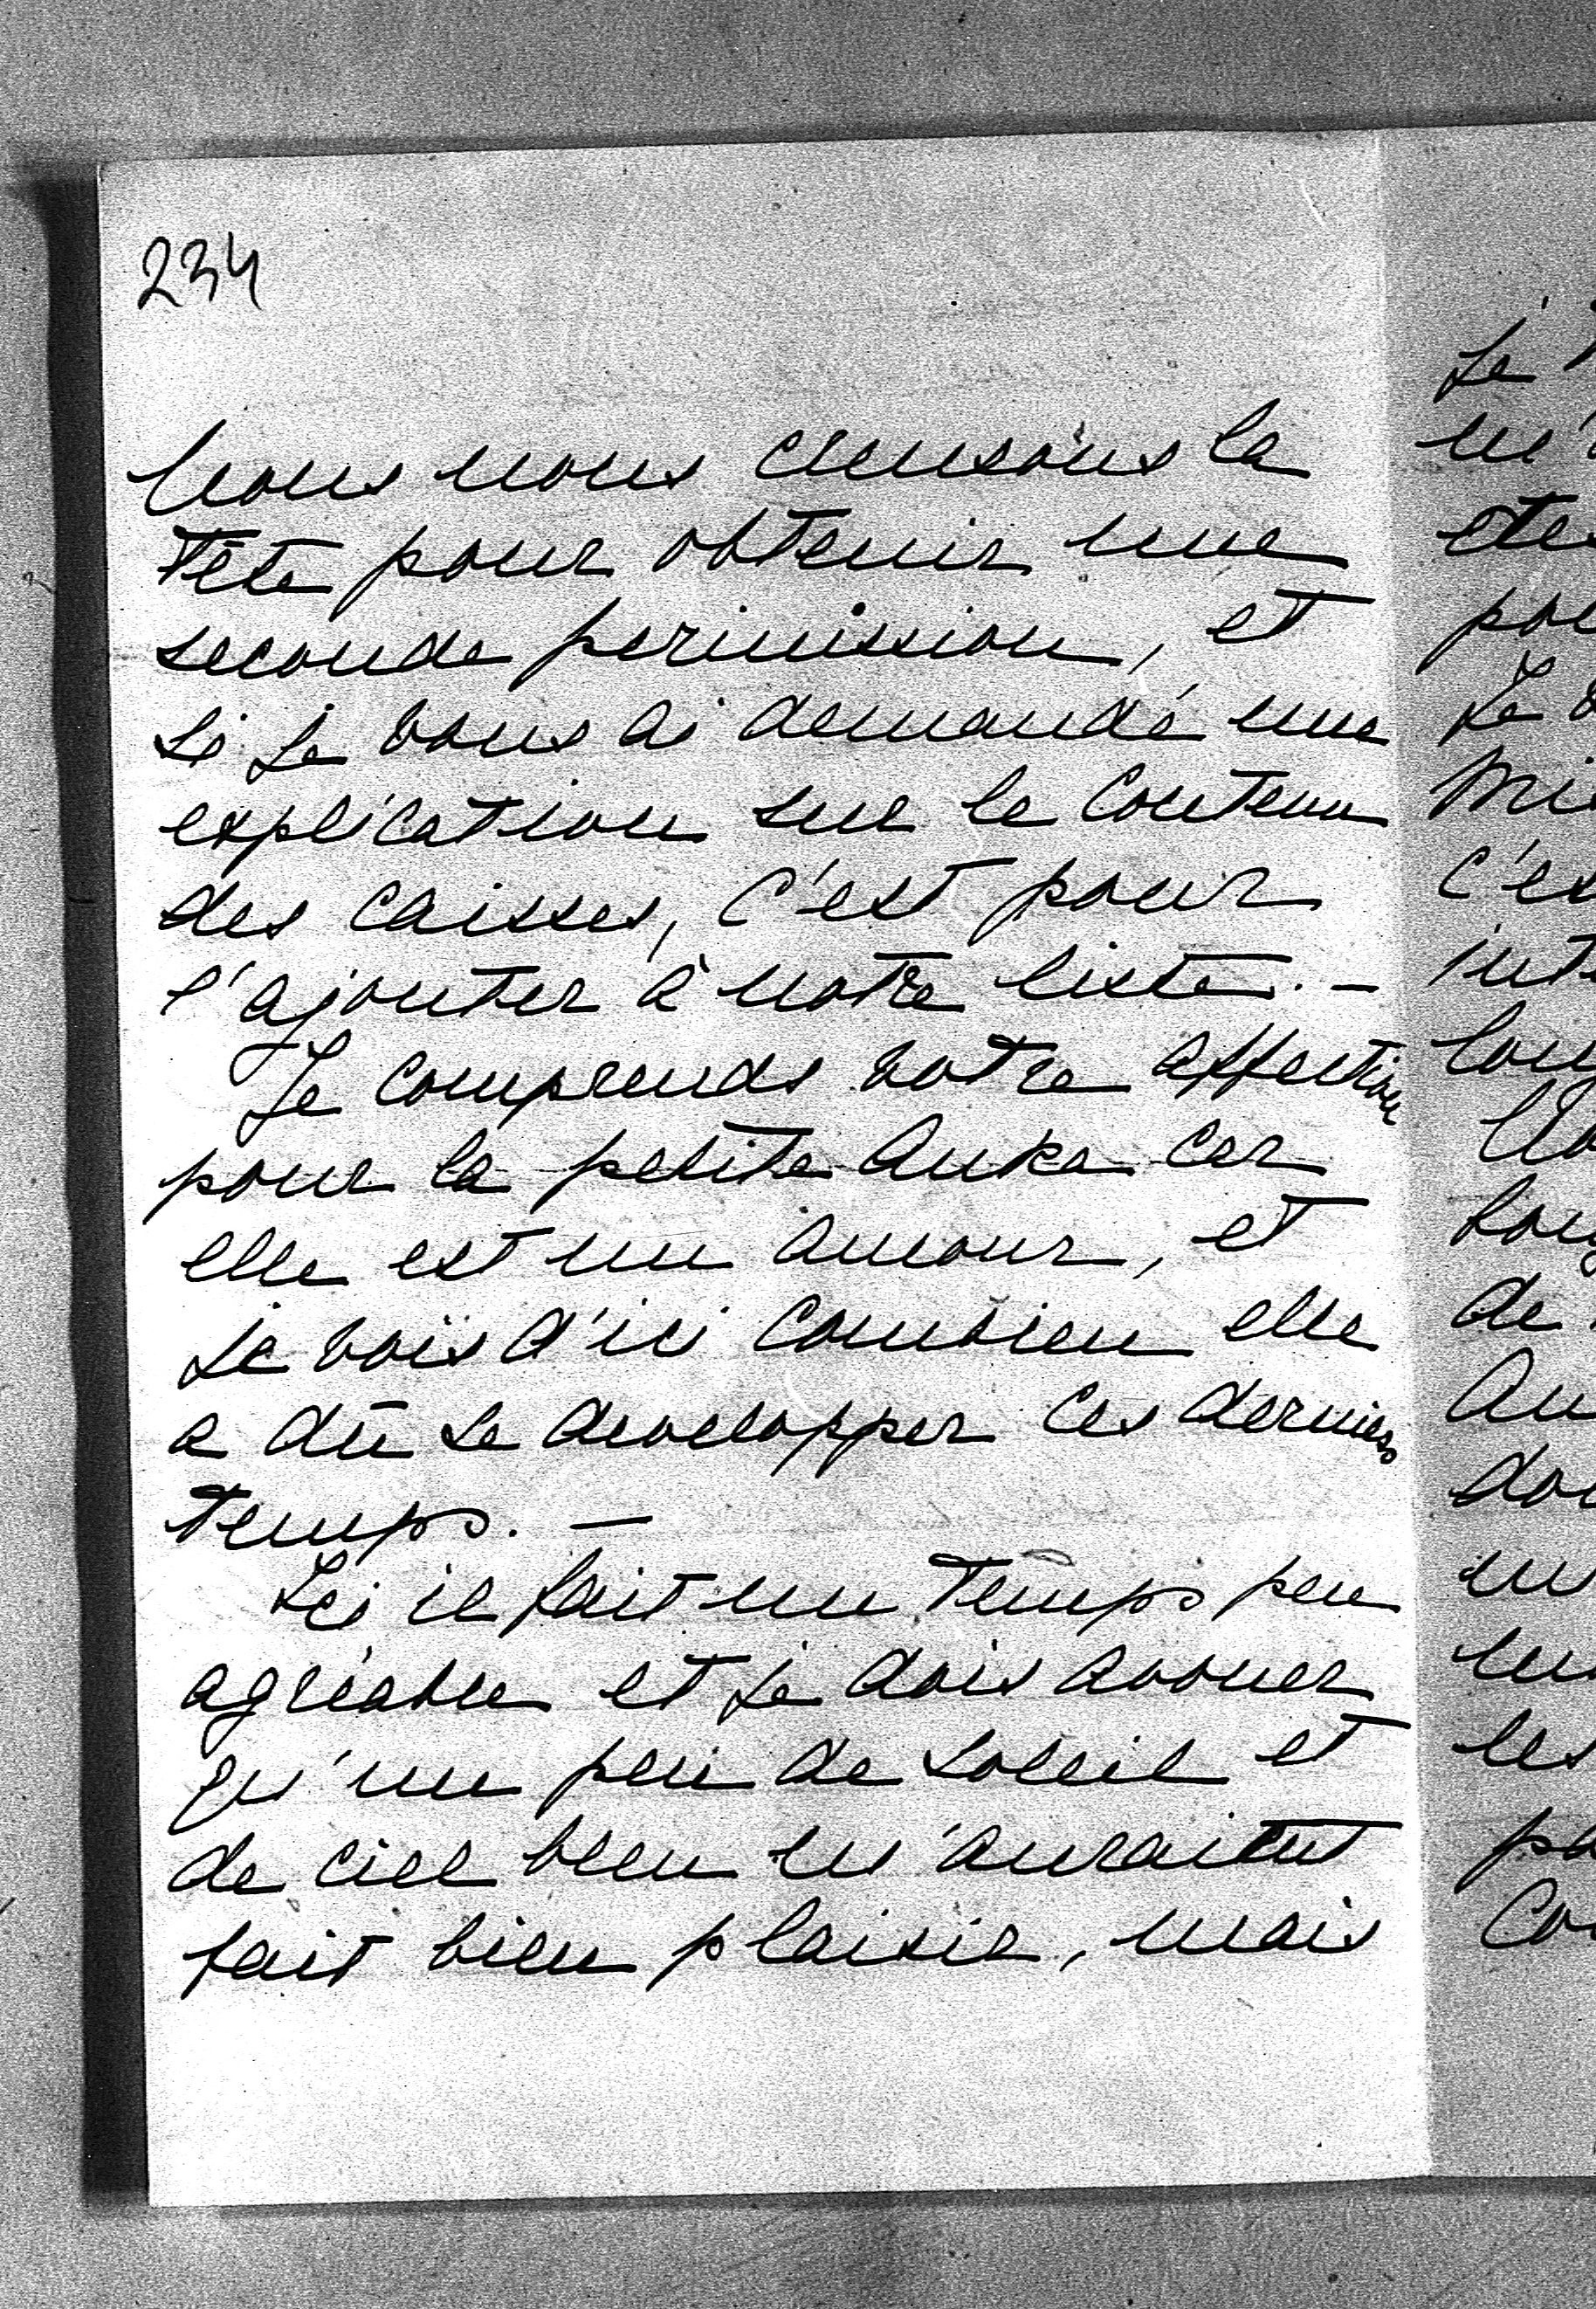 234
Nous nous creusons la
tête pour obtenir une
seconde permission, et
si je vous ai demandé une
explication sur le contenu
des caisses, c'est pour
l'ajouter à notre liste. –
Je comprends votre affection
pour la petite Anka car
elle est un amour, et
je vois d'ici combien elle
a dû se developper ces derniers
temps. –
Ici il fait un temps peu
agréable et je dois avouer
qu'un peu de soleil et
de ciel bleu m'auraient
fait bien plaisir, mais